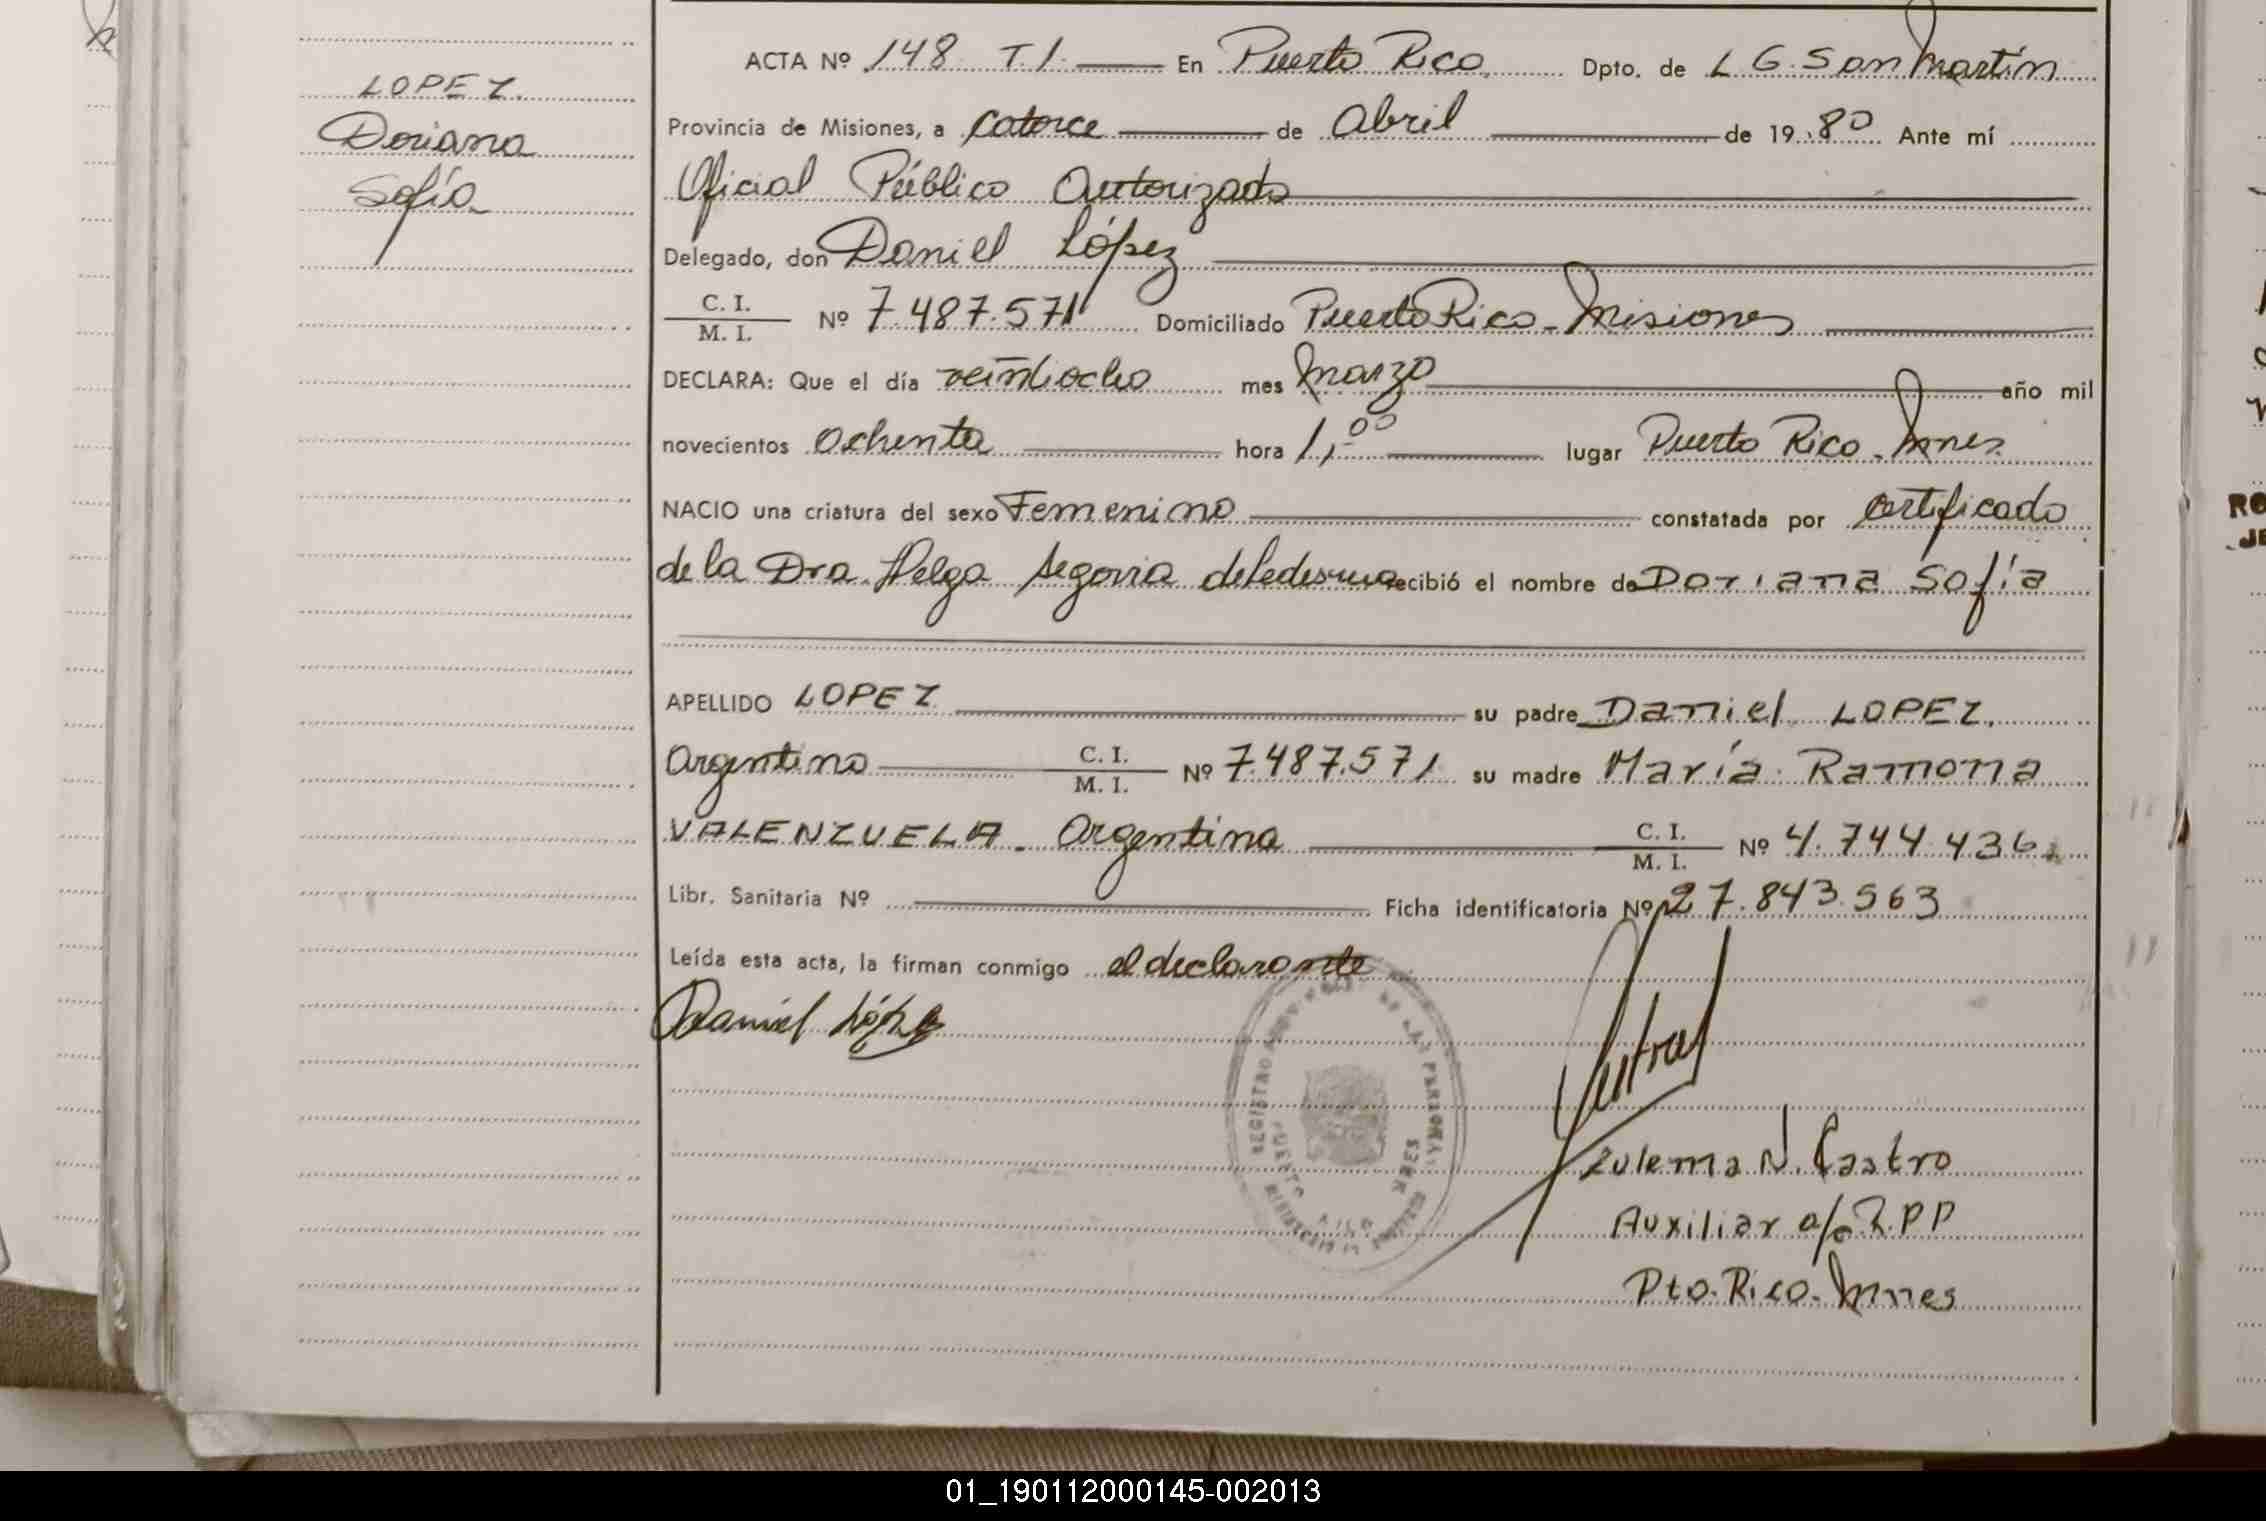 LOPEZ.
Doriana
Sofía
ACTA Nº 148 T.I. En Puerto Rico Dpto. de L G. San Martín
Provincia de Misiones, a catorce de Abril de 1980 Ante mí
Oficial Público Autorizado
Delegado, don Daniel López
C. I.
M. I.
Nº 7.487.571 Domiciliado Puerto Rico - Misiones
DECLARA: Que el día veintiocho mes marzo año mil
novecientos ochenta hora 1,00 lugar Puerto Rico - Mnes.
NACIO una criatura del sexo Femenino constatada por certificado
de la Dra. Helga Segovia de Ledesma recibió el nombre de Doriana Sofía
APELLIDO LOPEZ su padre Daniel LOPEZ.
Argentino C. I. M. I. Nº 7.487.571 su madre María Ramona
VALENZUELA. Argentina C. I. M. I. Nº 4.744.436.
Libr. Sanitaria Nº Ficha identificatoria Nº 27.843.563
Leída esta acta, la firman conmigo el declarante
Daniel López
Zulema N. Castro
Auxiliar a/c R.PP
Pto. Rico - Mnes
01_190112000145-002013